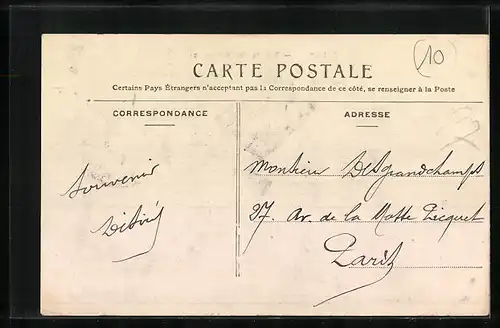 (10)
CARTE POSTALE
Certains Pays Étrangers n'acceptant pas la Correspondance de ce côté, se renseigner à la Poste
CORRESPONDANCE
ADRESSE
Souvenir
Monsieur Desgrandchamps
27. Av. de la Motte Picquet
Paris